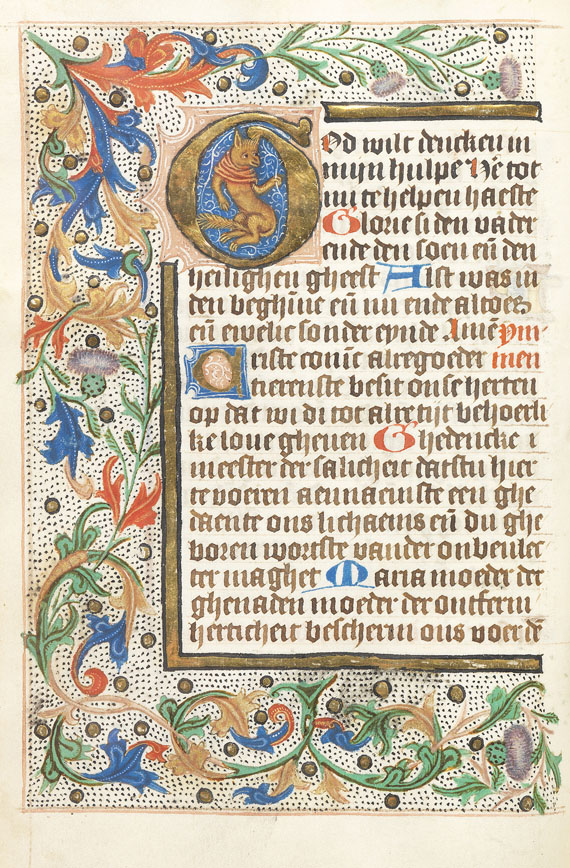 God wilt dencken in
mijn hulpe He tot
mi te helpen haeste
Glorie si den vader
ende den soen eñ den
heilighen gheest Alst was in
den beghinc eñ nu ende altoes
eñ ewelic sonder eynde Amē ym-
Criste coninc alregoeder men
tierenste besit onse herten
op dat wi di tot alre tijt behoerli
ke loue gheuen Ghedencke i
meester der salicheit datstu hier
te voeren aennaemste een ghe
daente ons lichaems eñ du ghe
boren wortste vander onbeulec
ter maghet Maria moeder der
ghenaden moeder der ontferm
herticheit bescherm ons voer dē